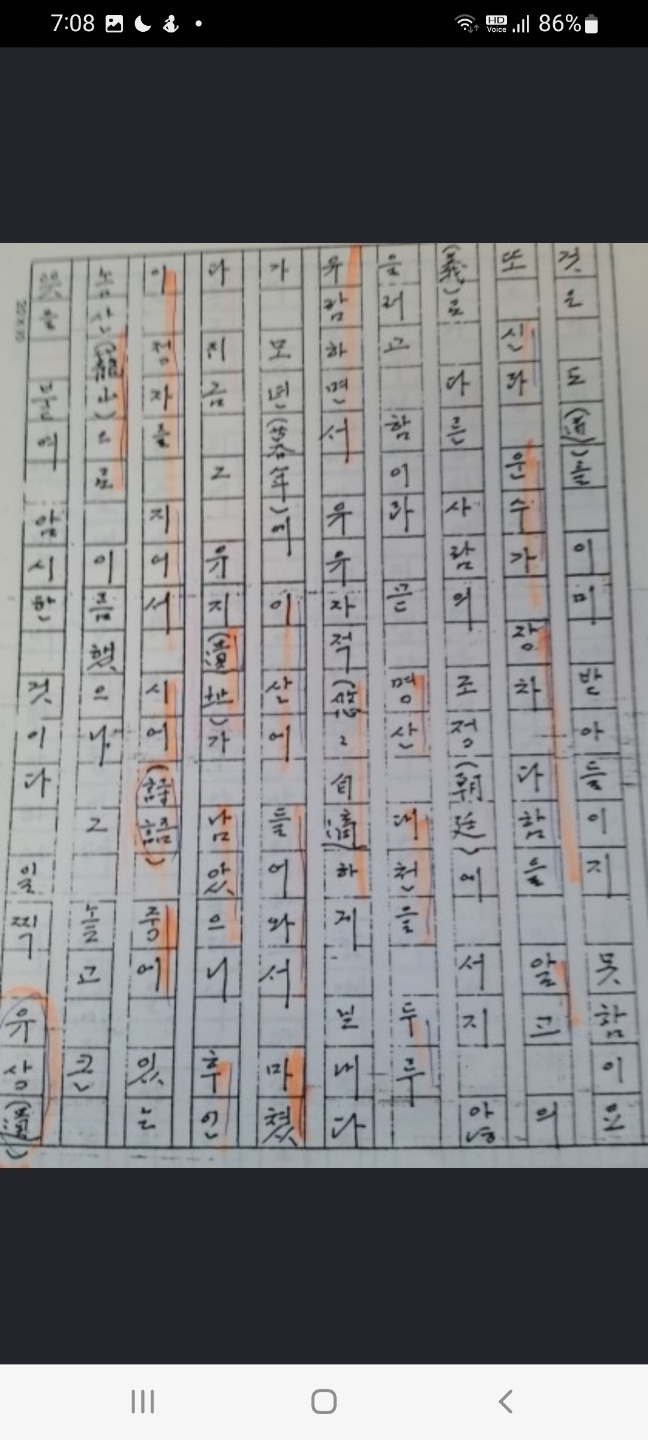 7:08 HD Voice 86%
것은 도(道)를 이미 받아들이지 못함이요
또 신라 운수가 장차 다함을 알고 의
(義)로 다른 사람의 조정(朝廷)에 서지 않
을려고 함이라 곧 명산대천을 두루
유람하면서 유유자적(悠々自適)하게 보내다
가 모년에 이 산에 들어와서 마쳤
다 지금 그 유지 가 남았으니 후인
이 정자를 지어서 시어(詩語) 중에 있는
농산(籠山)으로 이름했으니 그
암시한 것이다 일찍 유상
20X10